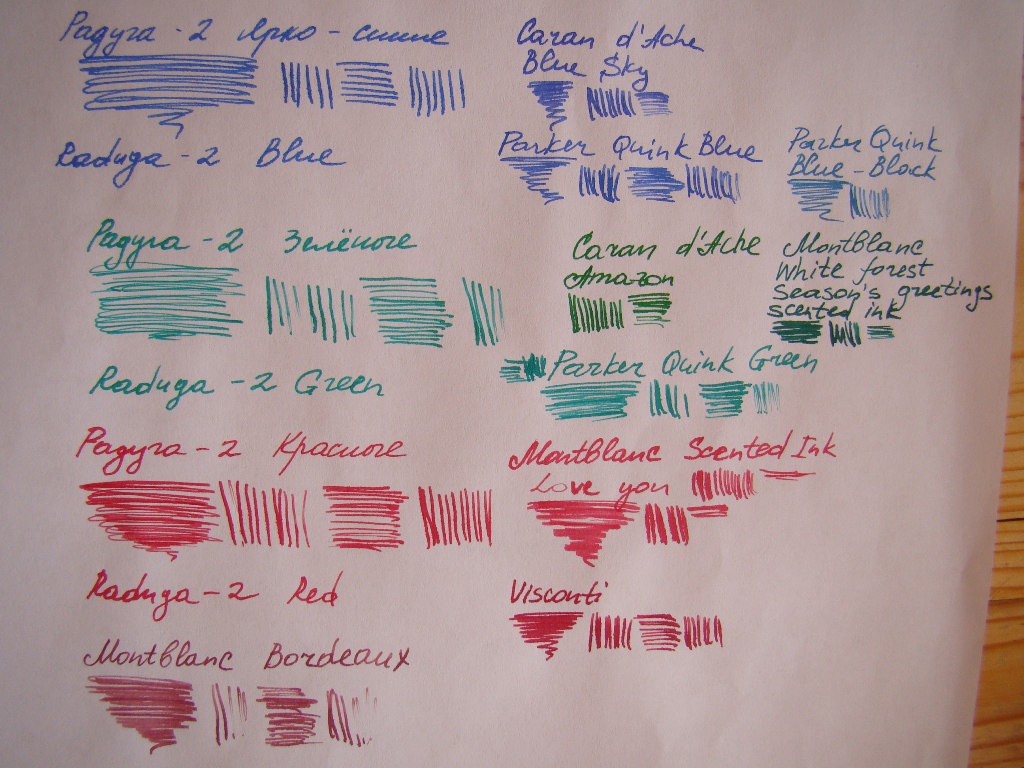 Радуга-2 Ярко-синие
Caran d'Ache
Blue Sky
Raduga-2 Blue
Parker Quink Blue
Parker Quink
Blue-Black
Радуга-2 Зелёные
Caran d'Ache
Amazon
Montblanc
White forest
Season's greetings
scented ink
Raduga-2 Green
Parker Quink Green
Радуга-2 Красные
Montblanc Scented Ink
Love you
Raduga-2 Red
Visconti
Montblanc Bordeaux